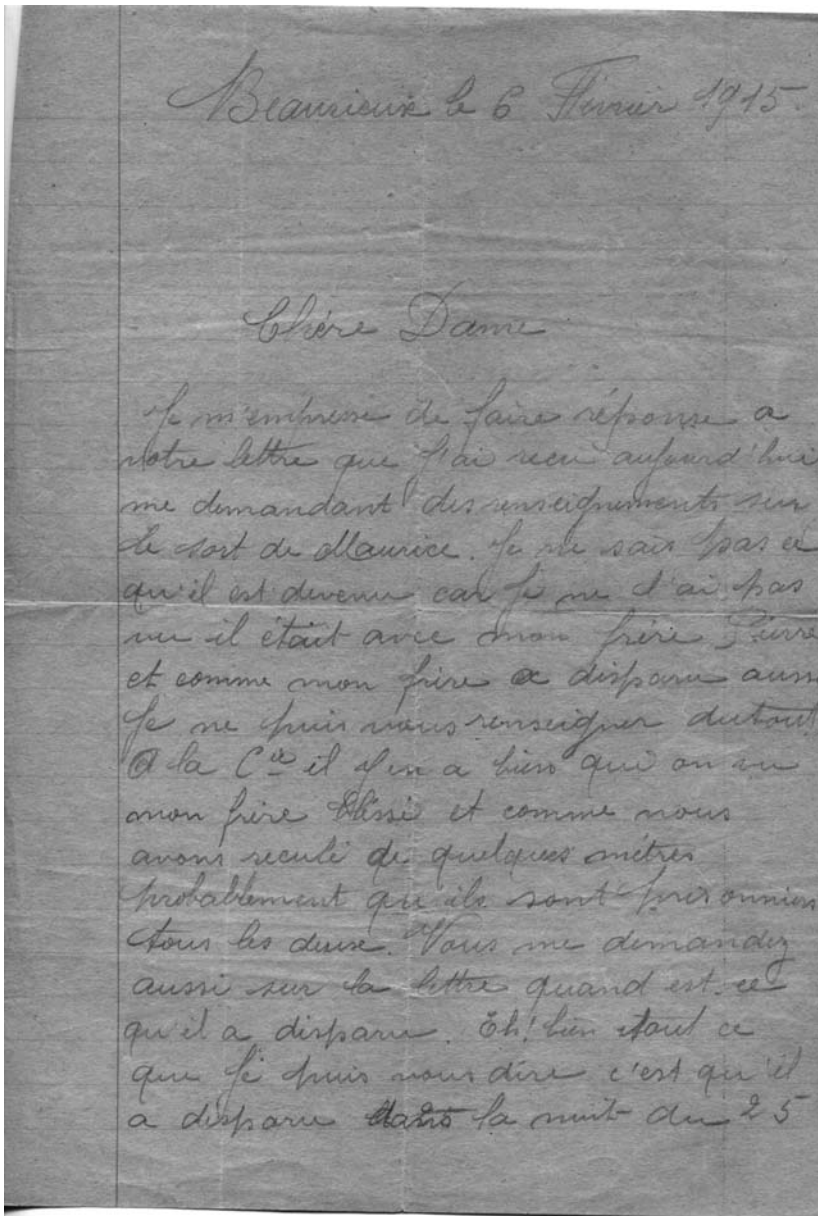 Beaurieux le 6 Février 1915.
Chère Dame
Je m'empresse de faire réponse a
votre lettre que j'ai recu aujourd'hui
me demandant des renseignements sur
le sort de Maurice. Je ne sais pas ce
qu'il est devenu car je ne l'ai pas
vu il était avec mon frère Pierre
et comme mon frère a disparu aussi
Je ne puis vous renseigner dutout
A la Cie il y en a bien qui on vu
mon frère blessé et comme nous
avons reculé de quelques mètres
probablement qu'ils sont prisonniers
tous les deux. Vous me demandez
aussi sur la lettre quand est-ce
qu'il a disparu. Eh! bien tout ce
que je puis vous dire c'est qu'il
a disparu dans la nuit du 25